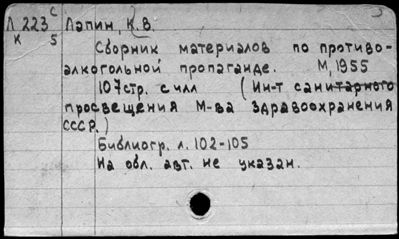 Л 223 с Лапин, К.В.
к 5
Сборник материалов по противо-
алкогольной пропаганде. М, 1955
107стр. с илл (Ин-т санитарного
просвещения М-ва здравоохранения
СССР.)
Библиогр. л. 102-105
На обл. авт. не указан.